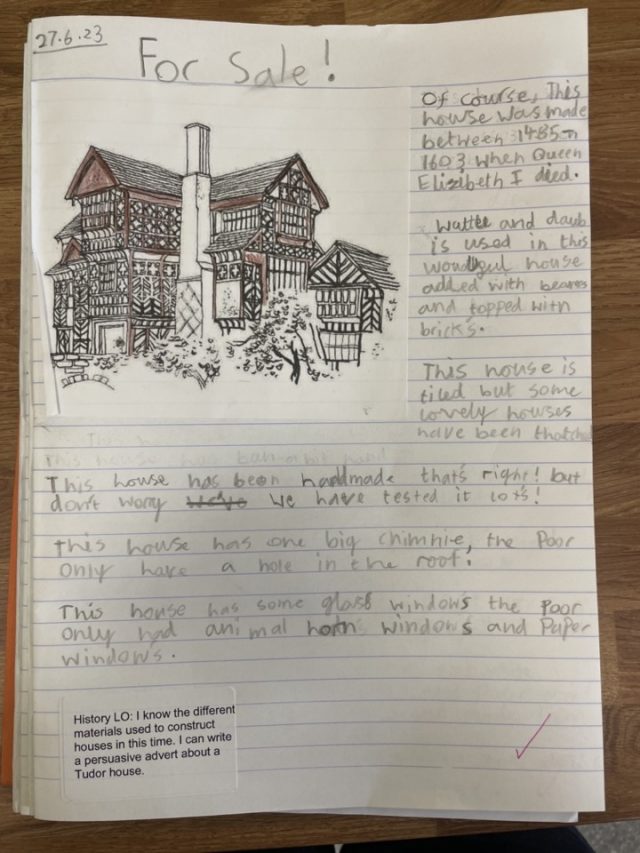 27.6.23
For Sale!
Of course, This
house was made
between 1485-
1603 when Queen
Elizibeth I died.
Wattle and daub
is used in this
house
added with beams
and topped with
bricks.
This house is
tiled but some
lovely houses
have been thatched
This house has been handmade that's right! but
don't worry we have tested it lots!
This house has one big chimnie, the Poor
only have a hole in the roof.
This house has some glass windows the Poor
only had animal horn windows and Paper
windows.
History LO: I know the different
materials used to construct
houses in this time. I can write
a persuasive advert about a
Tudor house.